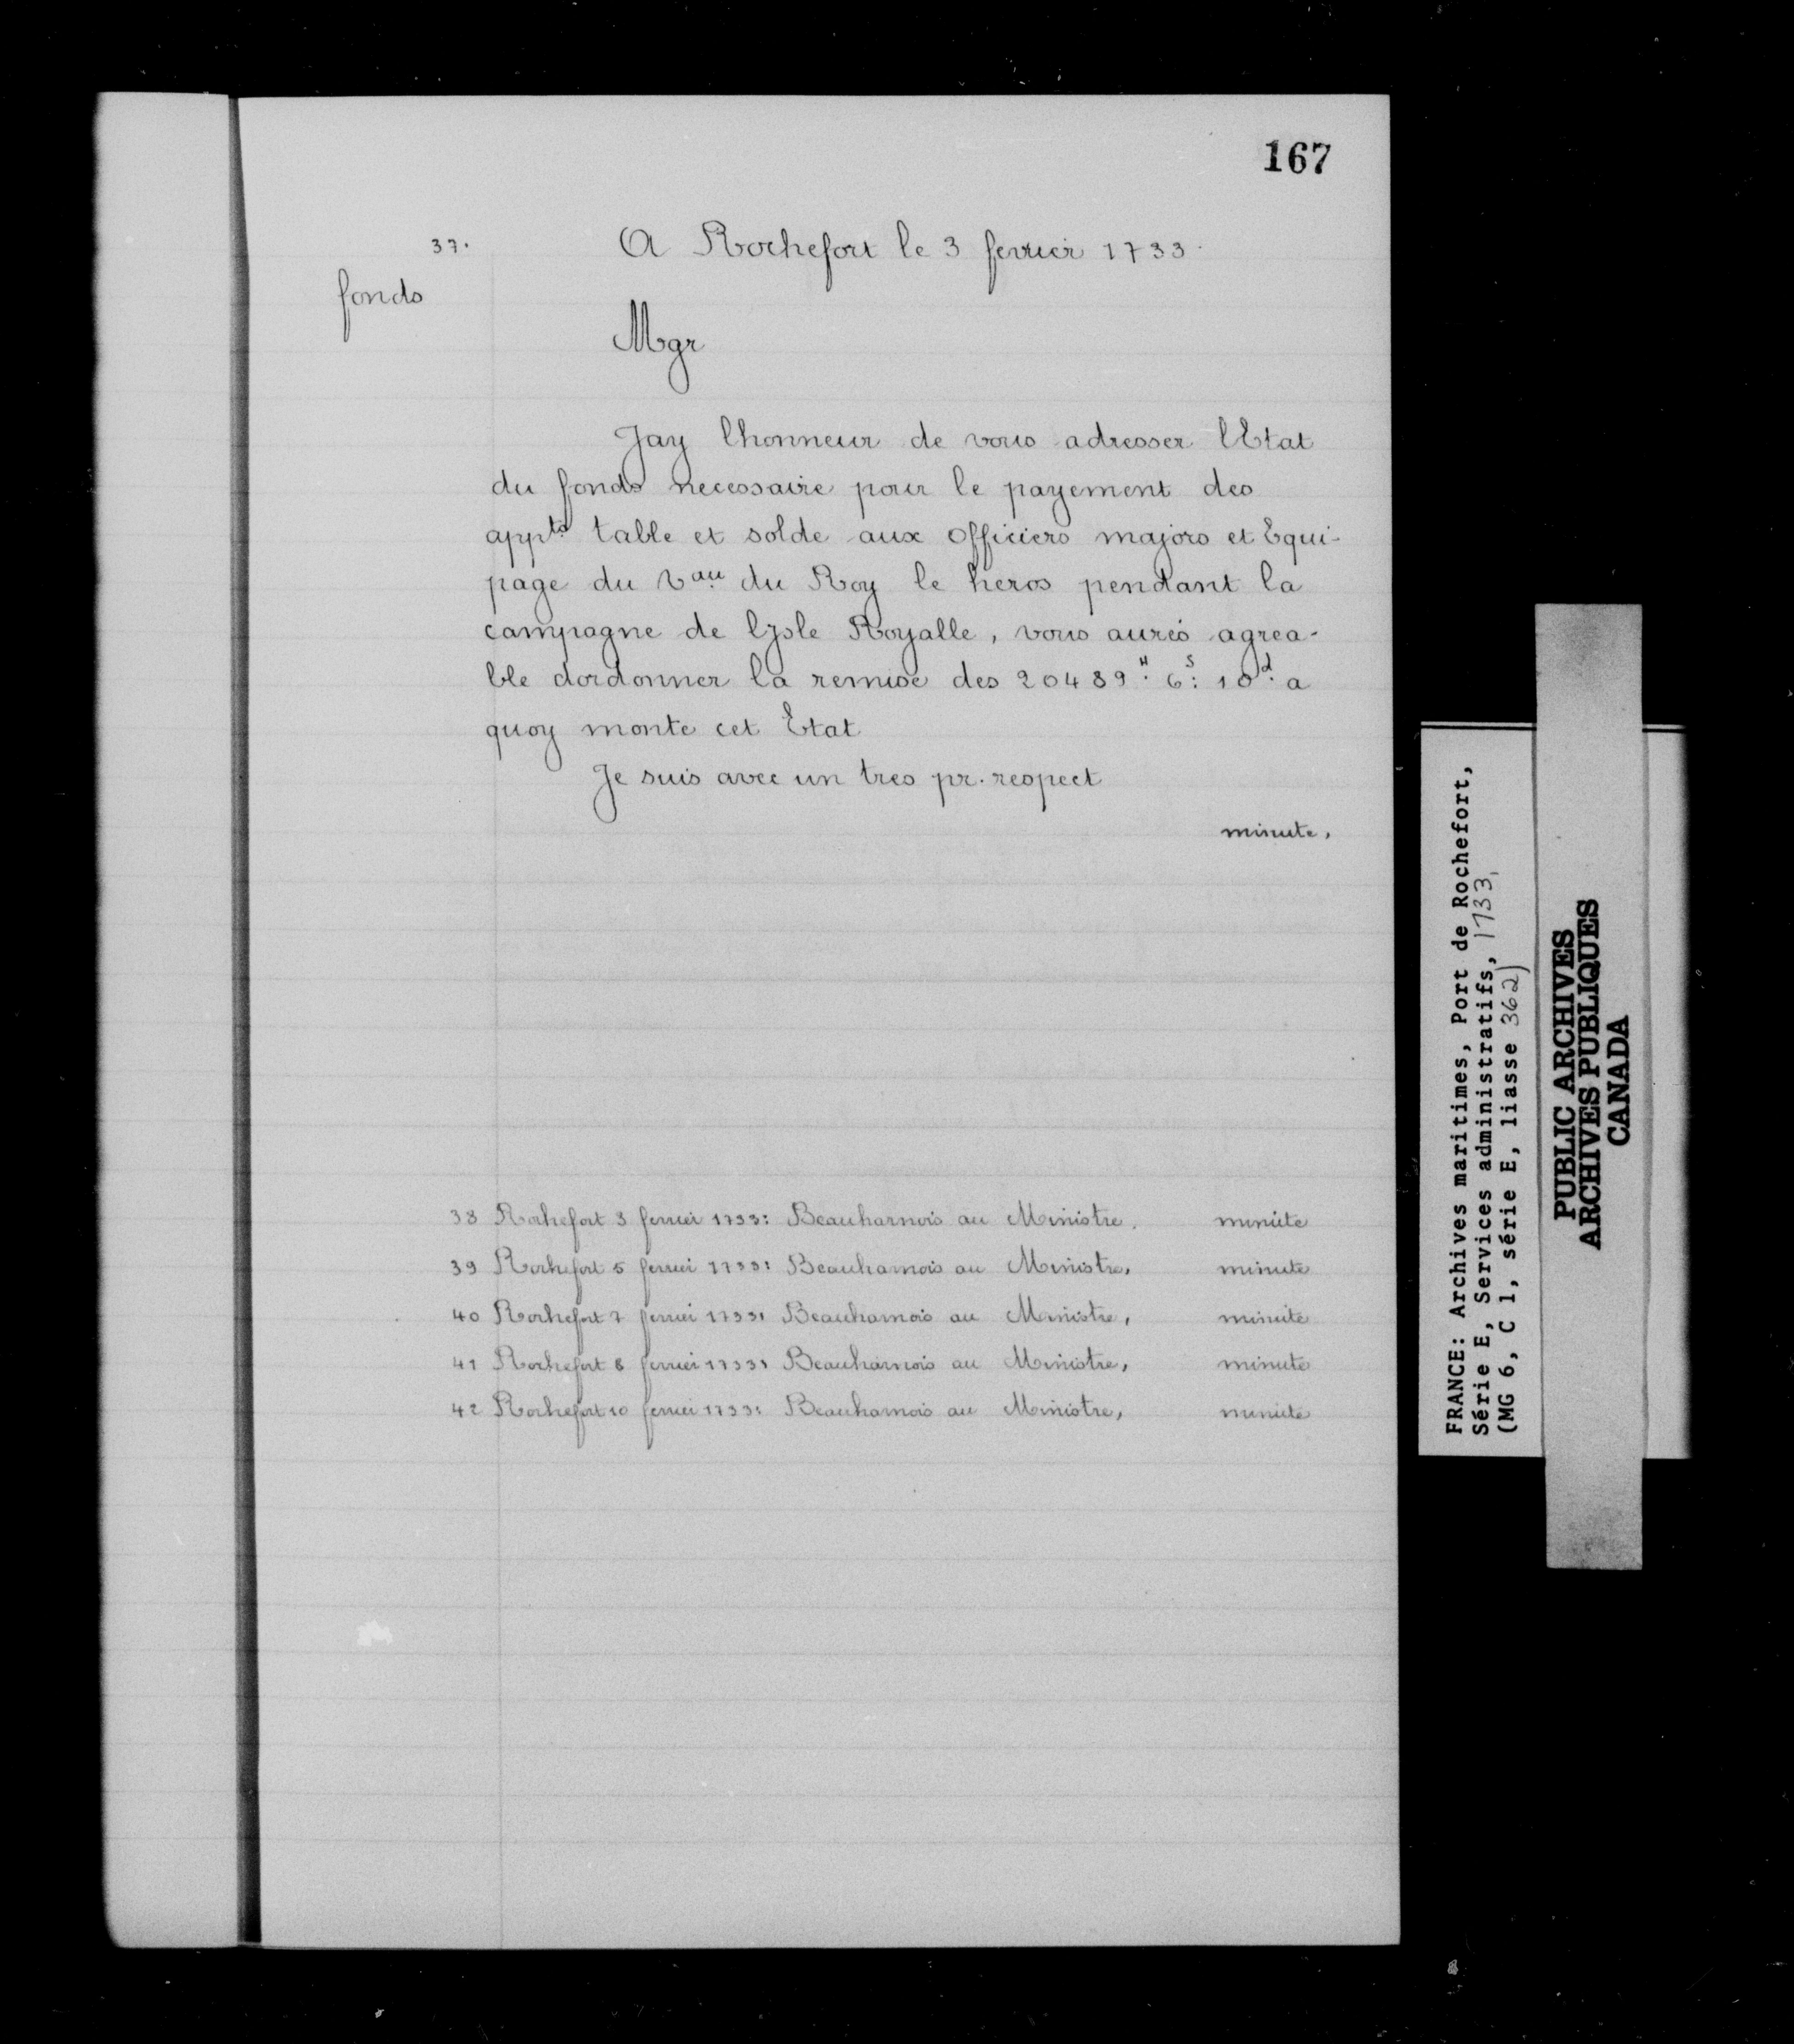 167
37. A Rochefort le 3 fevrier 1733.
fonds
Mgr
Jay lhonneur de vous adresser lEtat
du fonds necessaire pour le payement des
appts table et solde aux officiers majors et Equi-
page du Vau du Roy le heros pendant la
campagne de lJsle Royalle, vous aurés agrea-
ble dordonner la remise des 20489# 6s: 10d: a
quoy monte cet Etat
Je suis avec un tres pr. respect
minute,
38 Rochefort 3 fevrier 1733: Beauharnois au Ministre. minute
39 Rochefort 5 fevrier 1733: Beauharnois au Ministre, minute
40 Rochefort 7 fevrier 1733, Beauharnois au Ministre, minute
41 Rochefort 8 fevrier 1733, Beauharnois au Ministre, minute
42 Rochefort 10 fevrier 1733: Beauharnois au Ministre, minute
FRANCE: Archives maritimes, Port de Rochefort,
Série E, Services administratifs, 1733,
(MG 6, C 1, série E, liasse 362)
PUBLIC ARCHIVES
ARCHIVES PUBLIQUES
CANADA